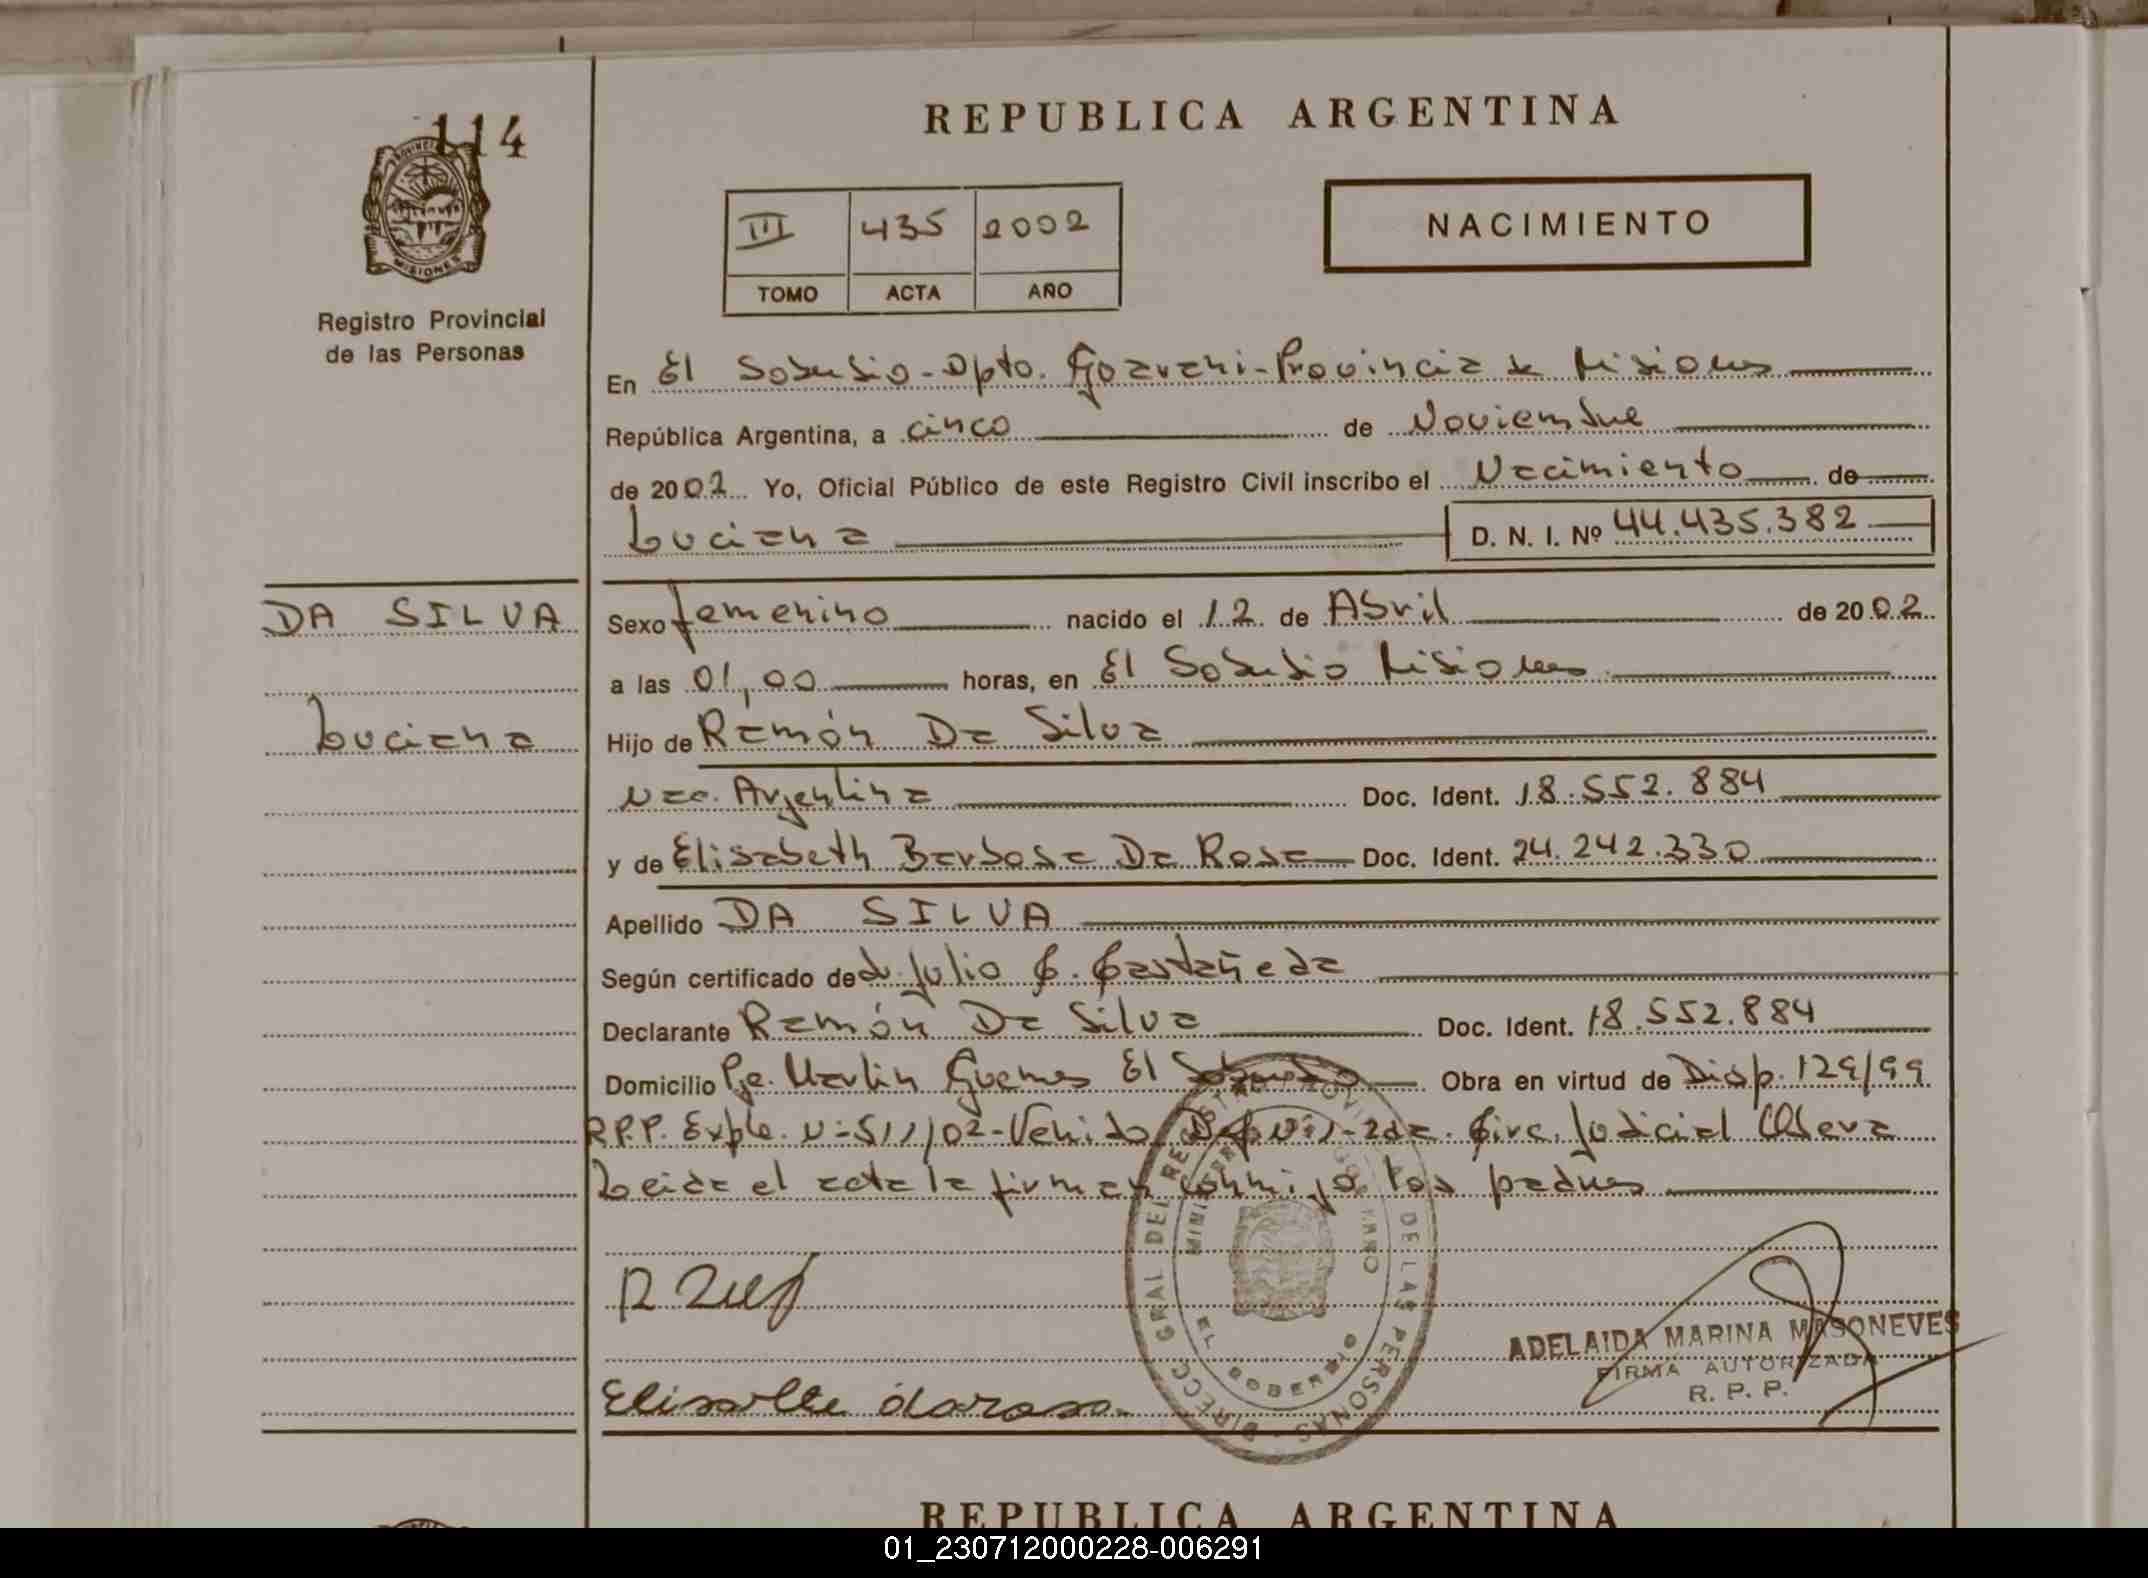 114
REPUBLICA ARGENTINA
III 435 2002
TOMO ACTA AÑO
NACIMIENTO
PROVINCIA
MISIONES
Registro Provincial
de las Personas
En El Soberbio - Dpto. Guarani - Provincia de Misiones
República Argentina, a cinco de Noviembre
de 2002 Yo, Oficial Público de este Registro Civil inscribo el Nacimiento de
Luciana D. N. I. Nº 44.435.382
DA SILVA
Luciana
Sexo femenino nacido el 12 de Abril de 2002
a las 01,00 horas, en El Soberbio Misiones
Hijo de Ramón Da Silva
Nac. Argentina Doc. Ident. 18.552.884
y de Elisabeth Barbosa Da Rosa Doc. Ident. 24.242.330
Apellido DA SILVA
Según certificado de dr. Julio C. Castañeda
Declarante Ramón Da Silva Doc. Ident. 18.552.884
Domicilio Pje. Martin Guemes El Soberbio Obra en virtud de Disp. 129/99
R.P.P. Expte. Nº 511/02 - Venido Def. Nº 1 - 2da. Circ. Judicial Obera
Leida el acta la firman conmigo los padres
DIRECC GRAL DEL REGISTRO PROVINCIAL DE LAS PERSONAS
EL SOBERBIO
Elisabete darosa.
ADELAIDA MARINA MASONEVES
FIRMA AUTORIZADA
R. P. P.
REPUBLICA ARGENTINA
01_230712000228-006291